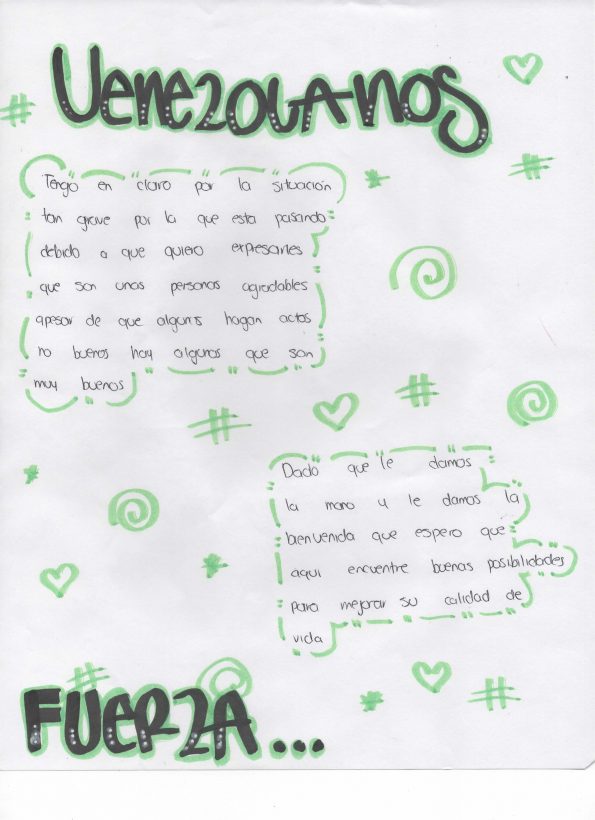 VenezolAnos
Tengo en claro por la situación
tan grave por la que esta pasando
debido a que quiero expresarles
que son unas personas agradables
apesar de que algunas hagan actos
no buenos hay algunas que son
muy buenos
Dado que le damos
la mano y le damos la
bienvenida que espero que
aqui encuentre buenas posibilidades
para mejorar su calidad de
vida
FUERZA...